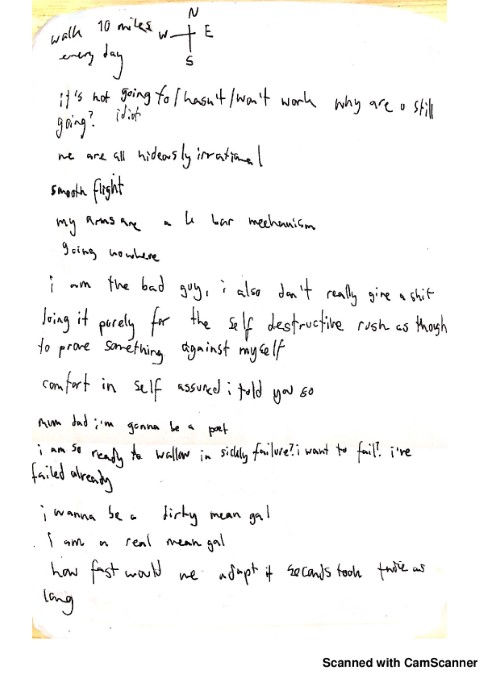 walk 10 miles
every day
N
W E
S
it's not going to/hasn't/won't work why are u still
going? idiot
we are all hideously irrational
smooth flight
my arms are a 4 bar mechanism
going nowhere
i am the bad guy, i also don't really give a shit
doing it purely for the self destructive rush as though
to prove something against myself
comfort in self assured i told you so
mum dad i'm gonna be a poet
i am so ready to wallow in sickly failure? i want to fail? i've
failed already
i wanna be a dirty mean gal
i am a real mean gal
how fast would we adapt if seconds took twice as
long
Scanned with CamScanner